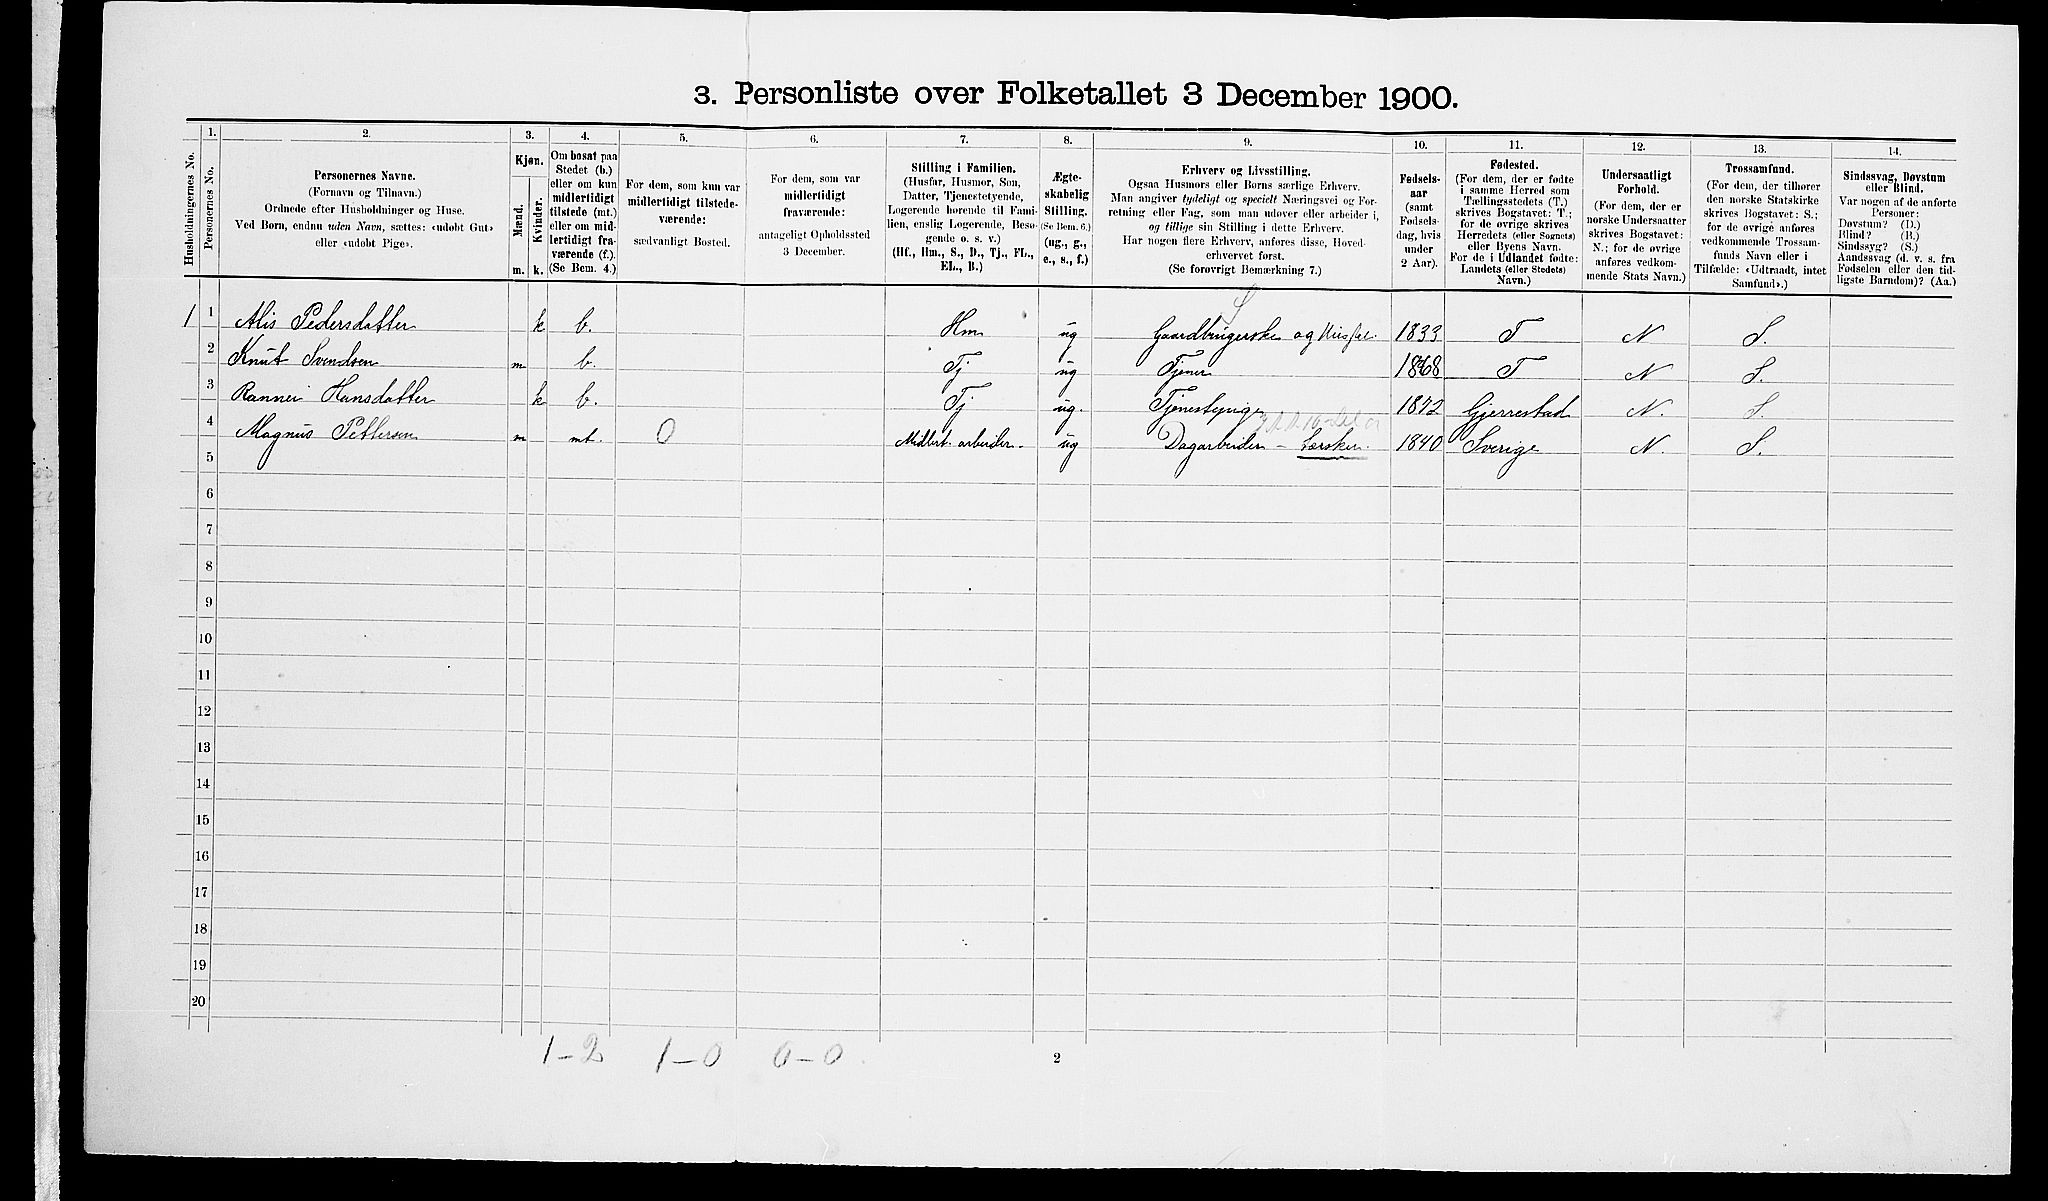 3. Personliste over Folketallet 3 December 1900.
Husholdningernes No.
1.
Personernes No.
2.
Personernes Navne.
(Fornavn og Tilnavn.)
Ordnede efter Husholdninger og Huse.
Ved Børn, endnu uden Navn, sættes: «udøbt Gut»
eller «udøbt Pige».
3.
Kjøn.
Mænd.
Kvinder.
m.
k.
4.
Om bosat paa
Stedet (b.)
eller om kun
midlertidigt
tilstede (mt.)
eller om mid-
lertidigt fra-
værende (f.).
(Se Bem. 4.)
5.
For dem, som kun var
midlertidigt tilstede-
værende:
sædvanligt Bosted.
6.
For dem, som var
midlertidigt
fraværende:
antageligt Opholdssted
3 December.
7.
Stilling i Familien.
(Husfar, Husmor, Søn,
Datter, Tjenestetyende,
Logerende hørende til Fami-
lien, enslig Logerende, Besø-
gende o. s. v.)
(Hf., Hm., S., D., Tj., FL.,
EL., B.)
8.
Ægte-
skabelig
Stilling.
(Se Bem. 6.)
(ug., g.,
e., s., f.)
9.
Erhverv og Livsstilling.
Ogsaa Husmors eller Børns særlige Erhverv.
Man angiver tydeligt og specielt Næringsvei og For-
retning eller Fag, som man udøver eller arbeider i,
og tillige sin Stilling i dette Erhverv.
Har nogen flere Erhverv, anføres disse, Hoved-
erhvervet først.
(Se forøvrigt Bemærkning 7.)
10.
Fødsels-
aar
(samt
Fødsels-
dag, hvis
under
2 Aar).
11.
Fødested.
(For dem, der er fødte
i samme Herred som
Tællingsstedets (T.)
skrives Bogstavet: T.;
for de øvrige skrives
Herredets (eller Sognets)
eller Byens Navn.
For de i Udlandet fødte:
Landets (eller Stedets)
Navn.)
12.
Undersaatligt
Forhold.
(For dem, der er
norske Undersaatter
skrives Bogstavet:
N.; for de øvrige
anføres vedkom-
mende Stats Navn.)
13.
Trossamfund.
(For dem, der tilhører
den norske Statskirke
skrives Bogstavet: S.;
for de øvrige anføres
vedkommende Trossam-
funds Navn eller i
Tilfælde: «Udtraadt, intet
Samfund».)
14.
Sindssvag, Døvstum
eller Blind.
Var nogen af de anførte
Personer:
Døvstum? (D.)
Blind? (B.)
Sindssyg? (S.)
Aandssvag (d. v. s. fra
Fødselen eller den tid-
ligste Barndom)? (Aa.)
1 1 Alis Pedersdatter k b. Hm ug Gaardbrugerske og 1833 T N S.
2 Knut Svendsen m b. Tj ug Tjener 1868 T N S.
3 Rannei Hansdatter k b. Tj ug. Tjenestepige 1872 Gjerrestad N. S.
4 Magnus Pettersen m mt. 0 Midlert. arbeider. ug Dagarbeider – 1840 Sverige N. S.
5
6
7
8
9
10
11
12
13
14
15
16
17
18
19
20
1–2 1–0 0–0.
2